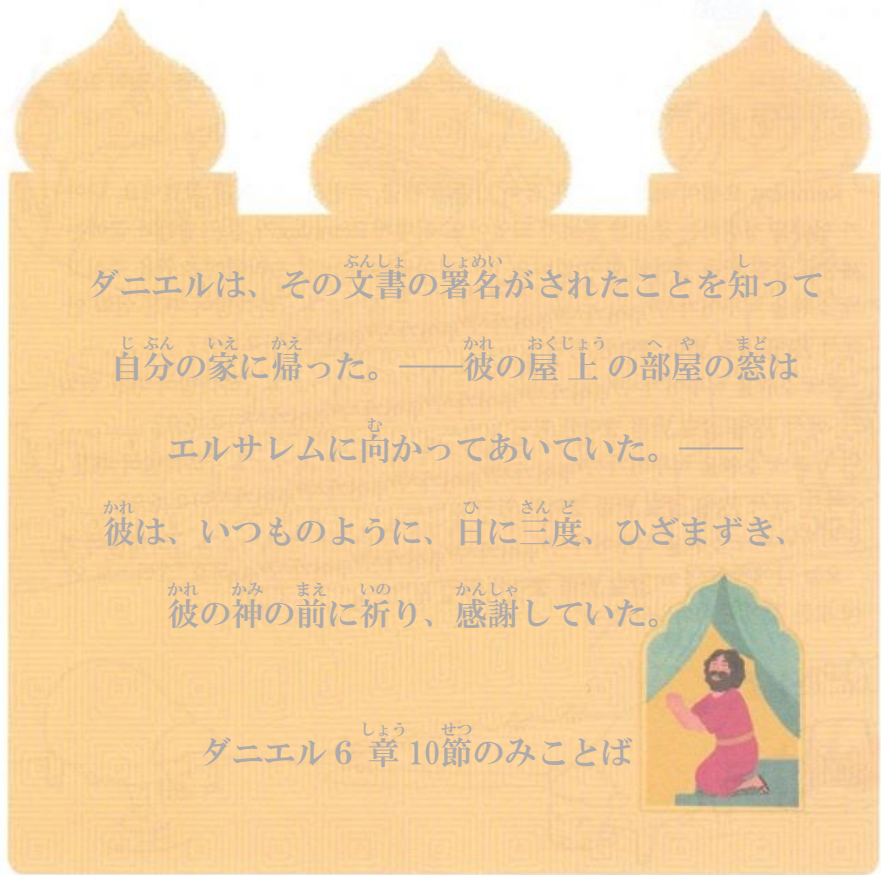 ダニエルは、その文書の署名がされたことを知って
自分の家に帰った。――彼の屋上の部屋の窓は
エルサレムに向かってあいていた。――
彼は、いつものように、日に三度、ひざまずき、
彼の神の前に祈り、感謝していた。
ダニエル6章10節のみことば